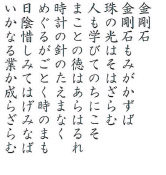 金剛石
金剛石もみがかずば
珠の光はそはざらむ
人も学びてのちにこそ
まことの徳はあらはるれ
時計の針のたえまなく
めぐるがごとく時のまも
日陰惜しみてはげみなば
いかなる業か成らざらむ